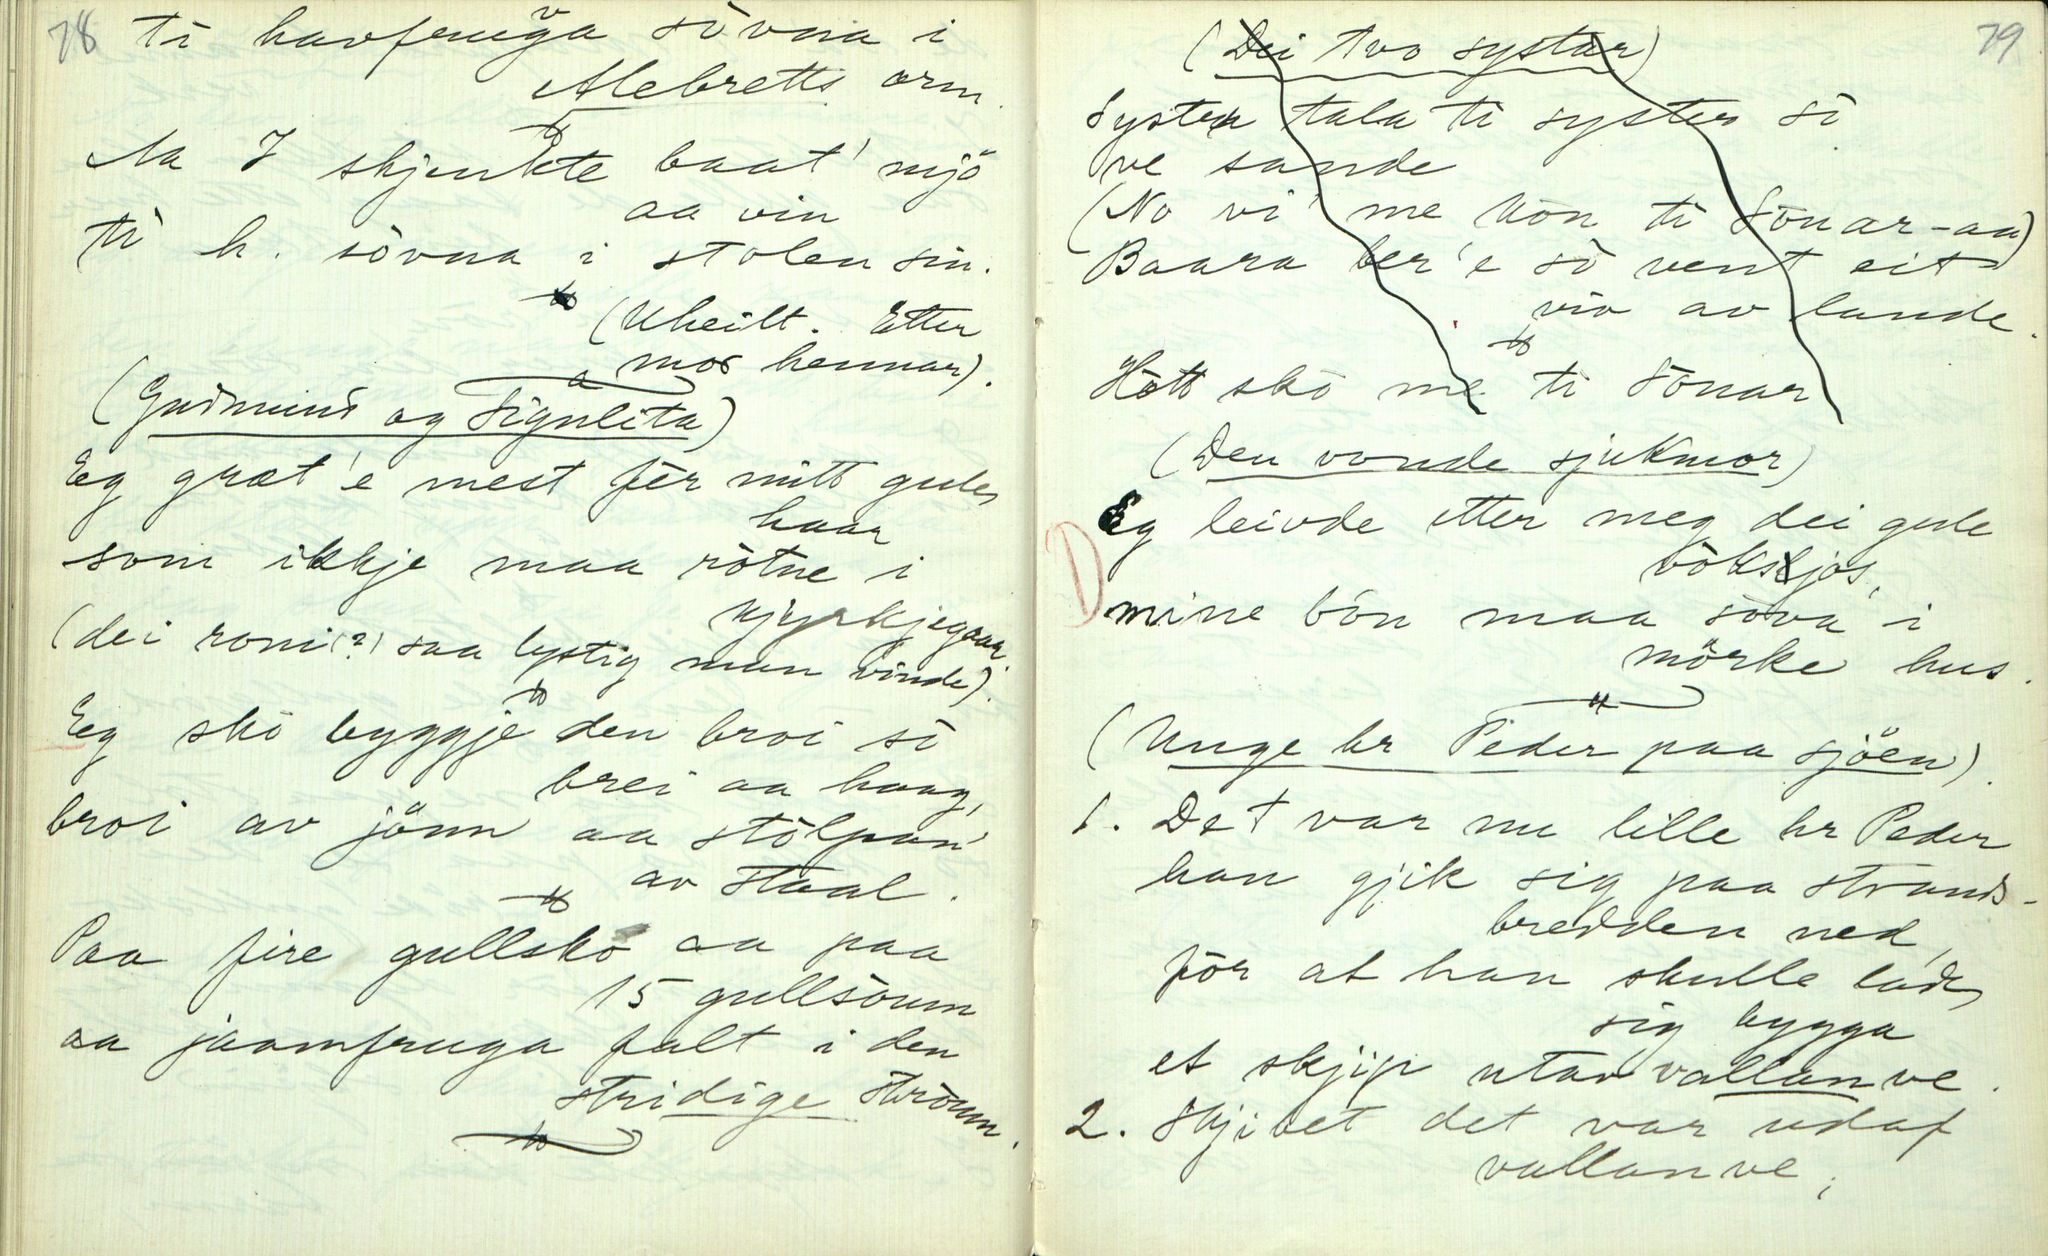 78
ti havfruga sòvna i
Alebretts arm.
Aa I skjenkte baat' mjö
aa vin
ti h. sòvna i stolen sin.
(Uheilt. Etter
mor hennar).
(Gudmund og Signelita)
Eg græt'e mest fër mitt gule
haar
som ikkje maa ròtne i
kjyrkjegaar.
(dei roni (?) saa lystig mun vinde).
Eg skò byggje den broi sò
brei aa haag,
broi av jönn aa stòlpan'
av staal.
Paa fire gullsko aa paa
15 gullsöum
aa jaamfruga falt i den
stridige ströum.
79
(Dei tvo systar)
Syster tala ti syster sì
ve sande
(No vi' me kòn ti Sönar-aa)
Baara ber'e sò vent eit
viv av lande.
Hòtt skò me ti Sönar
(Den vonde sjukmor)
Eg leivde etter meg dei gule
vòksljos,
mine bón maa sòva' i
mörke hus.
(Unge hr Peder paa sjöen).
1. Det var nu lille hr Peder
han gjik sig paa strands-
bredden ned,
för at han skulle lade
sig bygga
et skjip utav vallanve.
2. Skjibet det var udaf
vallanve,